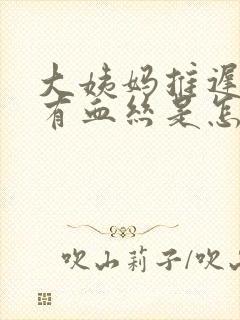 大姨妈推迟
有血丝是怎
吹山莉子/吹山